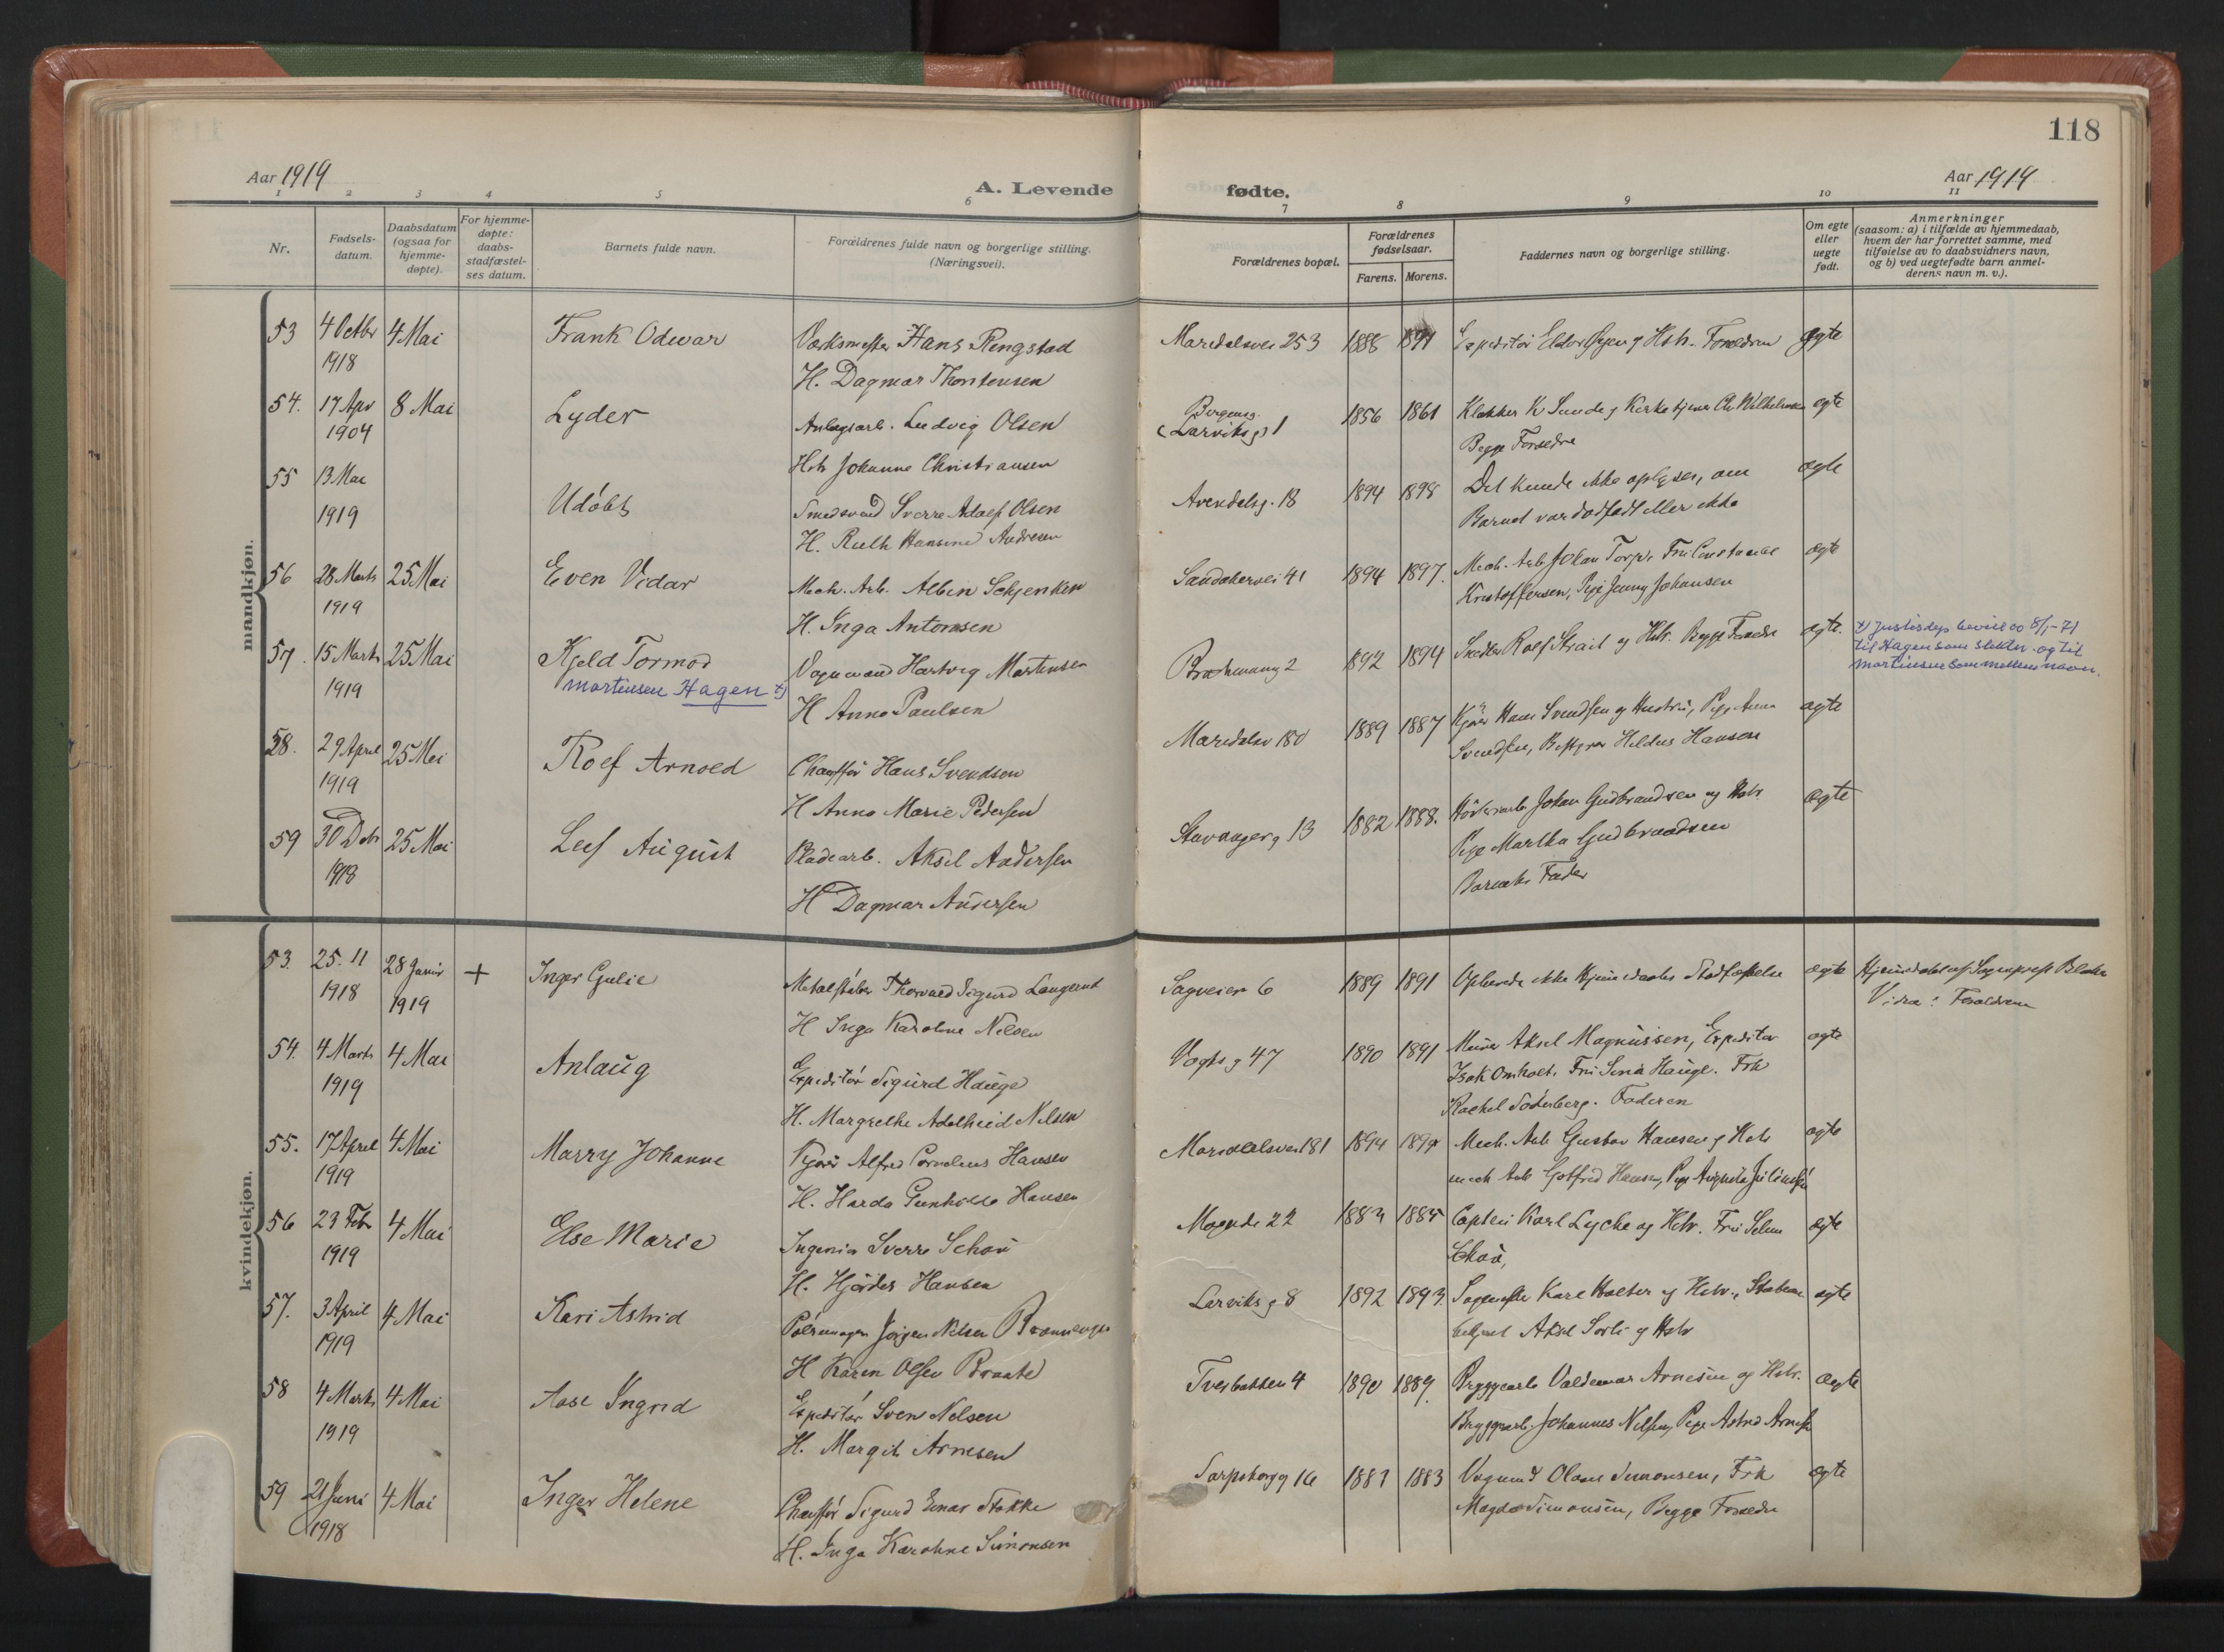 118
Aar 1919
A. Levende
fødte.
Aar 1919
1 2 3 4 5 6 7 8 9 10 11
Nr.
Fødsels-
datum.
Daabsdatum
(ogsaa for
hjemme-
døpte).
For hjemme-
døpte:
daabs-
stadfæstel-
ses datum.
Barnets fulde navn.
Forældrenes fulde navn og borgerlige stilling.
(Næringsvei).
Forældrenes bopæl.
Forældrenes
fødselsaar.
Farens. Morens.
Faddernes navn og borgerlige stilling.
Om egte
eller
uegte
født.
Anmerkninger
(saasom: a) i tilfælde av hjemmedaab,
hvem der har forrettet samme, med
tilføielse av to daabsvidners navn,
og b) ved uegtefødte barn anmel-
derens navn m. v.).
mandkjøn.
53 4 Octbr 4 Mai Frank Odvar Værksmester Hans Ringstad Maridalsvei 253 1888 1891 Expeditør og Hstr. Forældrene ægte
1918 H. Dagmar Thorstensen
54. 17 Apr 8 Mai Lyder Anlægsarb. Ludvig Olsen Bergensg.
(Larviksg) 1 1856 1861 Klokker K Sunde og Kirketjener Chr Wilhelmsen egte
1904 Hstr Johanne Christiansen Begge Forældre
55 13 Mai Udøbt Smedsvend Sverre Adolf Olsen Arendalsg. 18 1894 1898 Det kunde ikke oplyses, om ægte
1919 H. Ruth Hansine Andresen Barnet var dødfødt eller ikke
56 28 Marts 25 Mai Even Vidar Mech. Arb. Albin Schjenken Sandakervei 41 1894 1897. Mech. Arb Johan Torp, Fru Constance ægte
1919 H. Inga Antonsen Kristoffersen, Pige Jenny Johansen
57. 15 Marts 25 Mai Kjeld Tormod Vognmand Hartvig Martinsen 2 1892 1894 Rolf Strait og Hstr. Begge Forældre ægte. x) Justisdep bevill av 8/1-71
1919 Martinsen Hagen x) H Anna Paulsen til Hagen som slektsn. og til
Martinsen som mellemnavn.
58. 29 April 25 Mai Rolf Arnold Chauffør Hans Svendsen Maridalsv 180 1889 1887 Kjører Hans Svendsen og Hustru, Pige Anna ægte
1919 H Anna Marie Pedersen Svendsen, Bestyrer Hansen
59 30 Dcbr 25 Mai Leif August Pladearb. Aksel Andersen Stavangerg 13 1882 1888. Johan Gudbrandsen og Hstr. ægte
1918 H Dagmar Andersen Pige Martha Gudbrandsen
Barnets Fader
kvindekjøn.
53. 25. 11 28 Januar + Inger Gulie Thorvald Sigurd Sagveien 6 1889 1891 Opleverde ikke Hjemmedaabs Stadfæstelse ægte Hjemmedøbt af Sogneprest
1918 1919 H Inga Karoline Nilsen Vidner: Forældrene
54. 4 Marts 4 Mai Anlaug Expeditør Sigurd Hauge Vogtsg 47 1890 1891 Murer Aksel Magnussen, Expeditør ægte
1919 H. Margrethe Adelheid Nilsen Isak Omholt. Fru Hauge. Frk
Rachel Söderberg. Faderen
55. 17 April 4 Mai Marry Johanne Kjører Alfred Cornelius Hansen Maridalsvei 181 1894 Mech. Arb Gustav Hansen og Hstr ægte
1919 H. Harda Gunhilde Hansen mech Arb Gotfred Hansen, Pige Augusta
56 23 Febr 4 Mai Else Marie Ingeniør Sverre Schou 22 1885 Captein Karl Lyche og Hstr. Fru ægte
1919 H. Hjørdis Hansen
57. 3 April 4 Mai Kari Astrid Pølsemager Jørgen Nilsen Larviksg 8 1892 1893. Karl Holter og Hstr., ægte
1919 H Karen Olsen Braate Aksel Sørli og Hstr
58 4 Marts 4 Mai Aase Ingrid Expeditør Sven Nilsen Tverbakken 4 1890 1889. Bryggearb Valdemar Arnesen og Hstr. ægte
1919 H. Margit Arnesen Bryggearb Johannes Nilsen, Pige Astrid Arnesen
59 21 Juni 4 Mai Inger Helene Chauffør Sigurd Einar Stokke Sarpsborgg 16 1881 1883 Vognmd Olaus Simonsen, Frk ægte
1918 H. Inga Karoline Simonsen Magda Simonsen, Begge Forældre